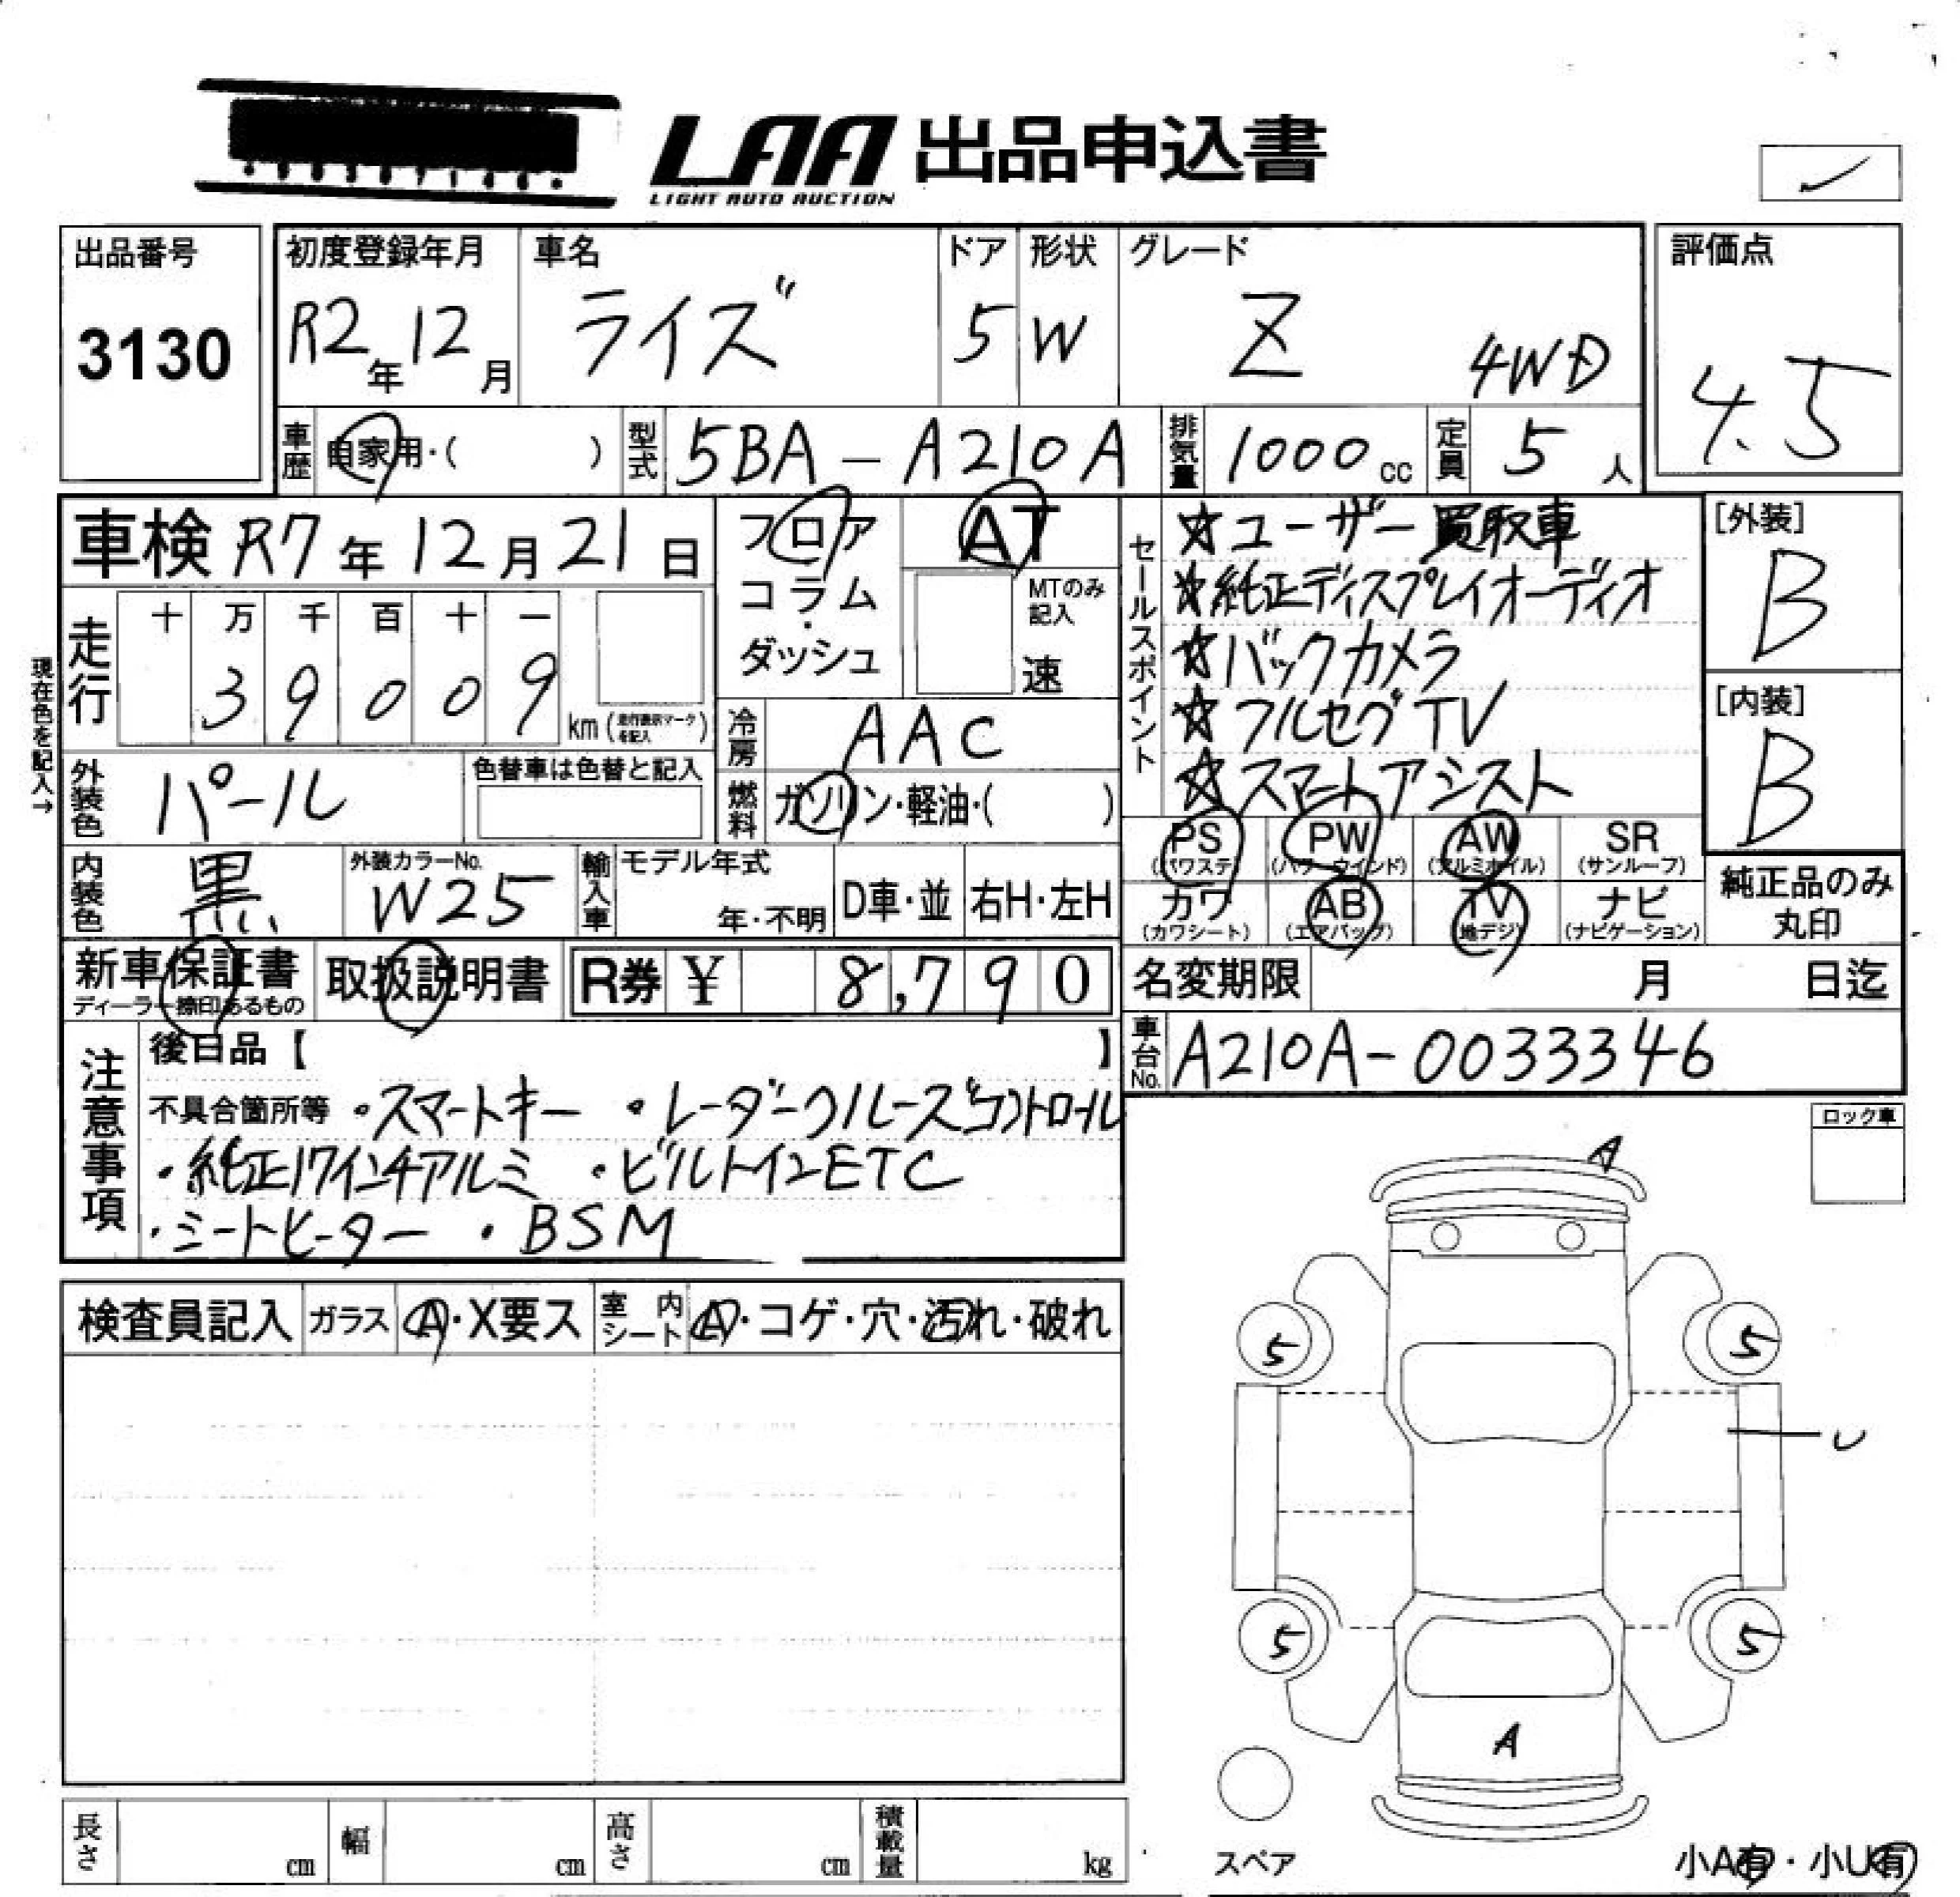 LAA 出品申込書
LIGHT AUTO AUCTION
出品番号
3130
初度登録年月
R2年12月
車名
ライズ
ドア
5
形状
W
グレード
Z 4WD
評価点
4.5
車歴 自家用・( )
型式 5BA-A210A
排気量 1000cc
定員 5人
車検 R7年12月21日
フロア
コラム
・
ダッシュ
AT
MTのみ
記入
速
セールスポイント
☆ユーザー買取車
☆純正ディスプレイオーディオ
☆バックカメラ
☆フルセグTV
☆スマートアシスト
[外装]
B
[内装]
B
現在色を記入→
走行
十 万 千 百 十 一
3 9 0 0 9
km (走行表示マークを記入)
冷房 AAC
外装色 パール
色替車は色替と記入
燃料 ガソリン・軽油・( )
PS (パワステ)
PW (パワーウインド)
AW (アルミホイル)
SR (サンルーフ)
カワ (カワシート)
AB (エアバッグ)
TV (地デジ)
ナビ (ナビゲーション)
純正品のみ
丸印
内装色 黒
外装カラーNo.
W25
輸入車
モデル年式
年・不明
D車・並
右H・左H
新車保証書
ディーラー捺印あるもの
取扱説明書
R券 ¥ 8,790
名変期限 月 日迄
車台No. A210A-0033346
注意事項
後日品【 】
不具合箇所等 ・スマートキー ・レーダークルーズコントロール
・純正17インチアルミ ・ビルトインETC
・シートヒーター ・BSM
ロック車
検査員記入
ガラス A・X要ス
室内シート A・コゲ・穴・汚れ・破れ
A
5 5
U
5 5
A
スペア
小A有・小U有
長さ cm
幅 cm
高さ cm
積載量 kg